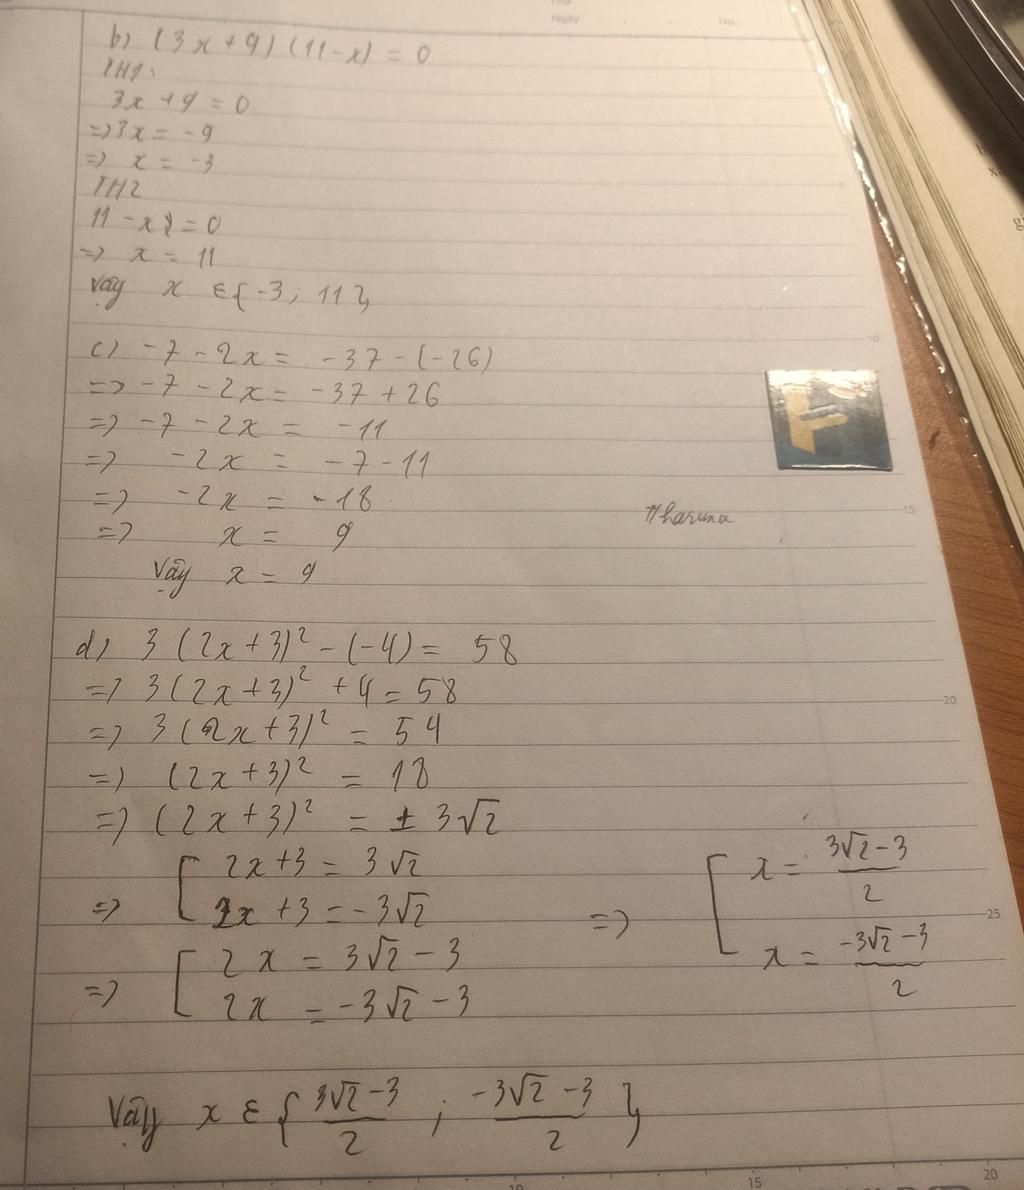 Thứ
Ngày No.
b) (3x+9)(11-x) = 0
TH1:
3x + 9 = 0
=> 3x = -9
=> x = -3
TH2
11 - x = 0
=> x = 11
Vậy x ε {-3; 11}
c) -7 - 2x = -37 - (-26)
=> -7 - 2x = -37 + 26
=> -7 - 2x = -11
=> -2x = -7 - 11
=> -2x = -18
=> x = 9
Vậy x = 9
d) 3(2x+3)² - (-4) = 58
=> 3(2x+3)² + 4 = 58
=> 3(2x+3)² = 54
=> (2x+3)² = 18
=> (2x+3)² = ± 3√2
=> [ 2x+3 = 3√2
2x+3 = -3√2
=> [ 2x = 3√2 - 3
2x = -3√2 - 3
=> [ x = (3√2 - 3)/2
x = (-3√2 - 3)/2
Vậy x ε { (3√2 - 3)/2 ; (-3√2 - 3)/2 }
5
10
15
20
25
10 15 20